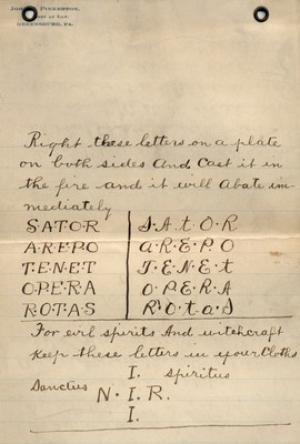 John B. Pinkerton,
Attorney at Law,
Greensburg, Pa.
Right these letters on a plate
on both sides And Cast it in
the fire and it will Abate im-
mediately
S.A.T.O.R | S.A.t.O.R
A.R.E.P.O | a.R.E.P.O
T.E.N.E.T | T.E.N.E.t
O.P.E.R.A | O.P.E.R.A
R.O.T.A.S | R.O.t.a.S
For evil spirits And witchcraft
Keep these letters in your Cloths
I. Spiritus
Sanctus N. I. R.
I.